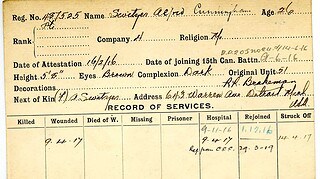 Reg. No. 487525 Name Swetzes Alfred Cunningham Age 26
Rank Pte Company D Religion
Date of Attestation 16/2/16 Date of joining 15th Can. Battn. 9-6-16
Height 5'8" Eyes Brown Complexion Dark Original Unit 51
Decorations
Next of Kin (F) A. Swetzes Address 643 Warren Ave. Detroit Mich.
USA
RECORD OF SERVICES.
Killed Wounded Died of W. Missing Prisoner Hospital Rejoined Struck Off
9-11-16 1.12.16
9-4-17 9-4-17 14.4.17
29-3-19